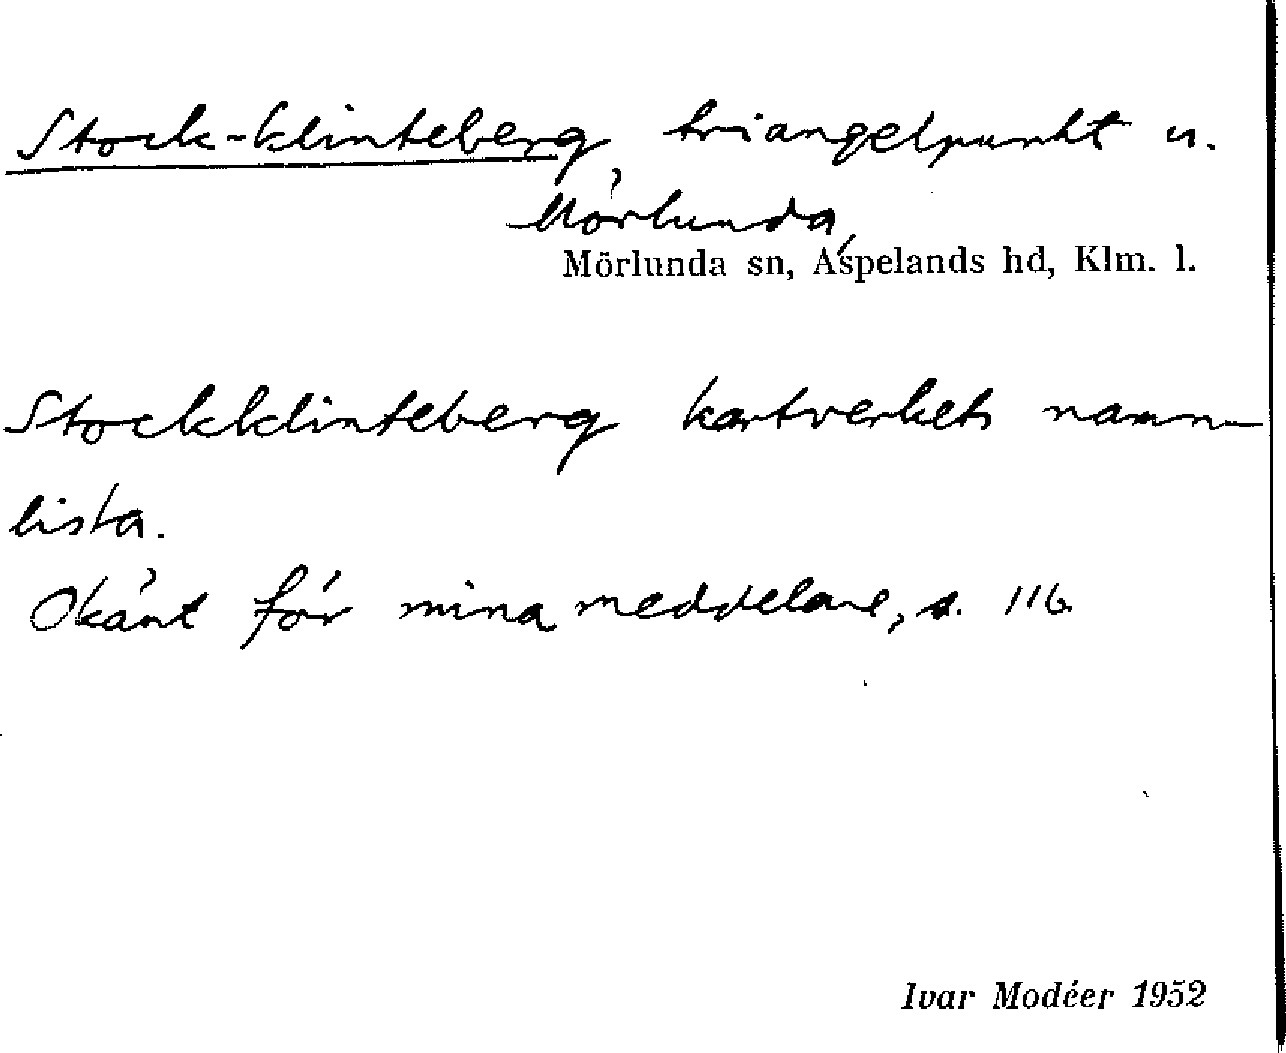 Stock-klinteberg, triangelpunkt u.
Mörlunda,
Mörlunda sn, Aspelands hd, Klm. l.
Stockklinteberg kartverkets namn-
lista.
Okänt för mina meddelare, s. 116
Ivar Modéer 1952